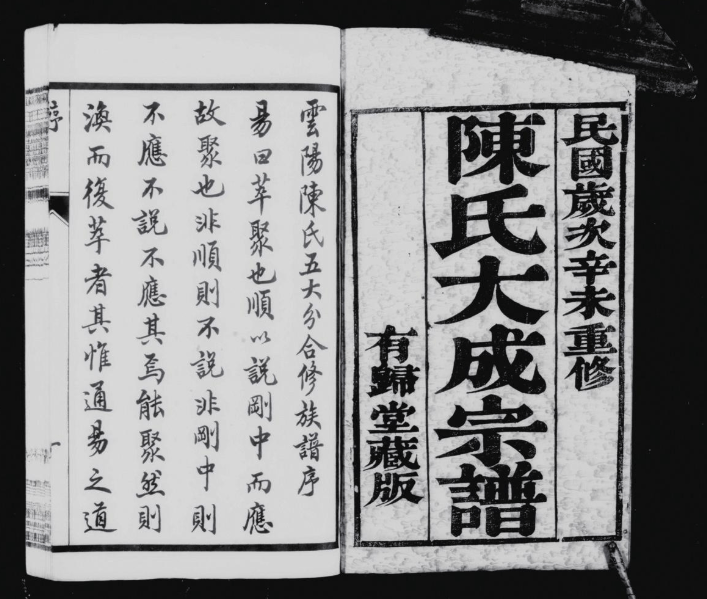 民國歲次辛未重修
陳氏大成宗譜
有歸堂藏版
雲陽陳氏五大分合修族譜序
易曰萃聚也順以說剛中而應
故聚也非順則不說非剛中則
不應不說不應其焉能聚然則
渙而復萃者其惟通易之道
序
一